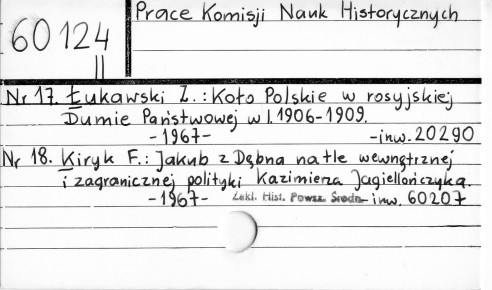 Prace Komisji Nauk Historycznych
60124
II
Nr 17. Łukawski Z.: Koło Polskie w rosyjskiej
Dumie Państwowej w l. 1906-1909.
-1967- -inw. 20290
Nr 18. Kiryk F.: Jakub z Dębna na tle wewnętrznej
i zagranicznej polityki Kazimierza Jagiellończyka.
-1967- Zakł. Hist. Powsz. Średn. -inw. 60207